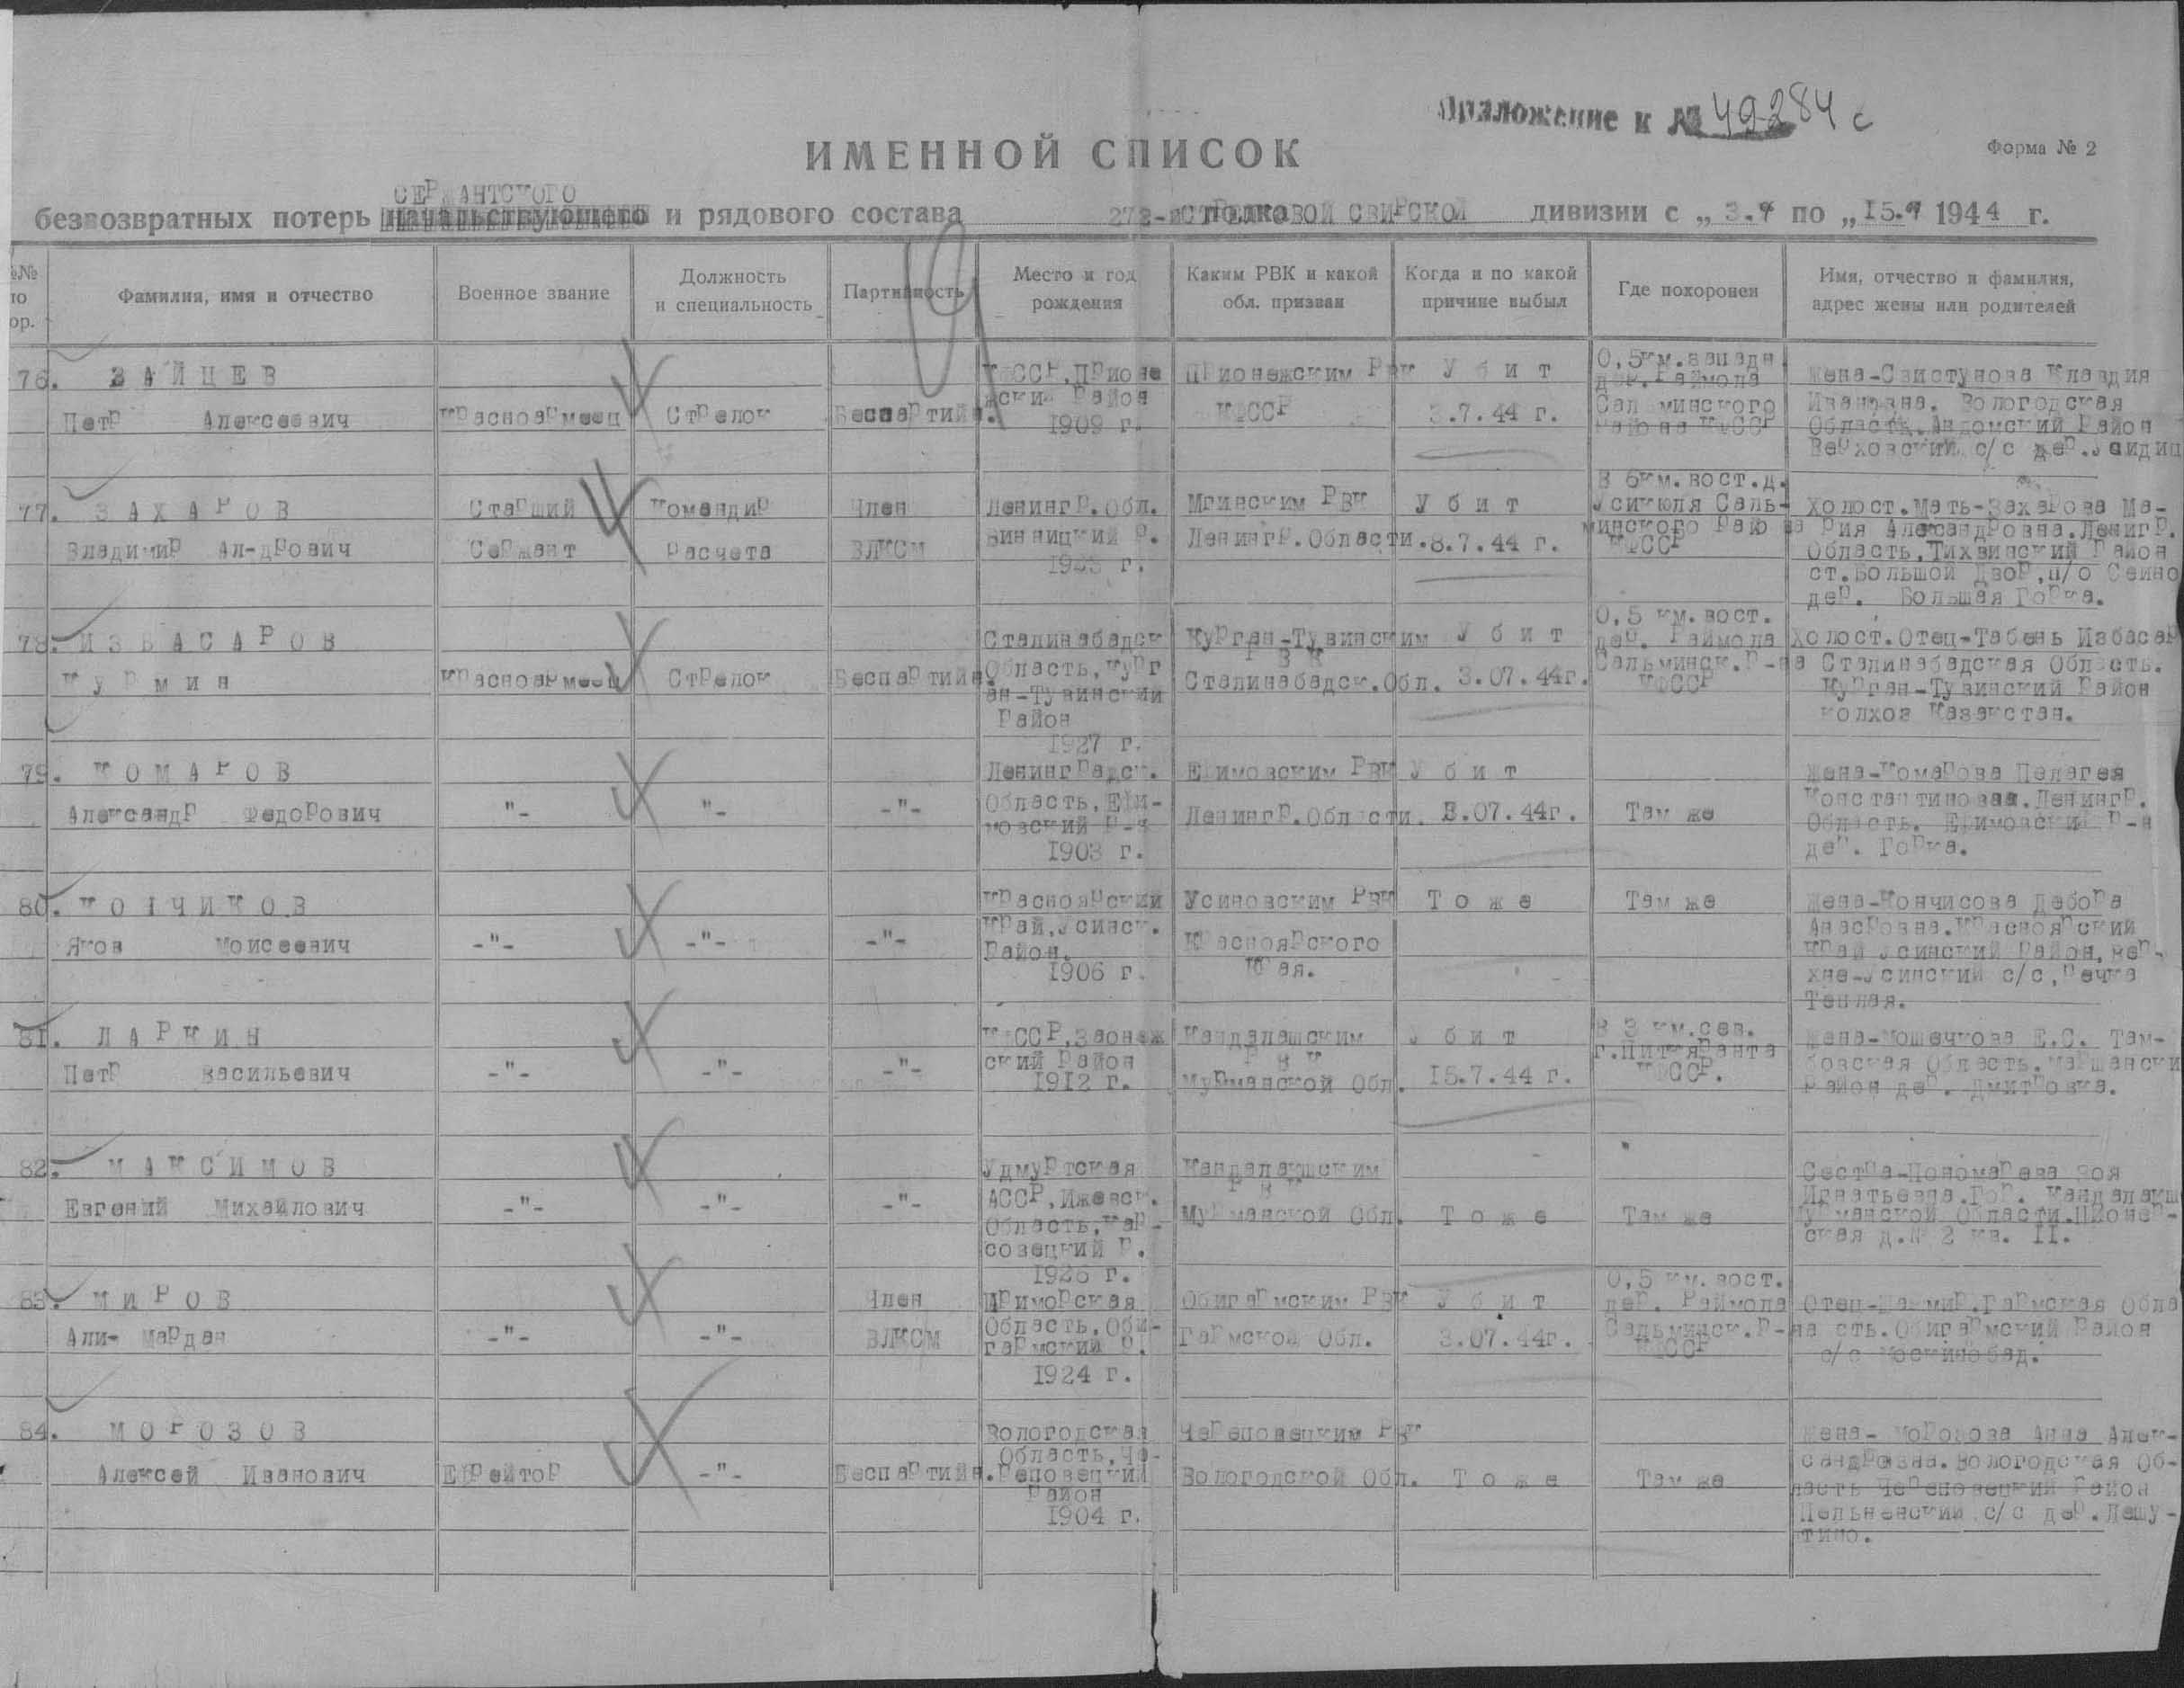 Приложение к № 49284 с
ИМЕННОЙ СПИСОК
Форма № 2
СЕРЖАНТСКОГО
безвозвратных потерь начальствующего и рядового состава 272-й СТРЕЛКОВОЙ СВИРСКОЙ дивизии с „ 3.7 по „ 15.7 1944 г.
№№ по ор.
Фамилия, имя и отчество
Военное звание
Должность и специальность
Партийность
Место и год рождения
Каким РВК и какой обл. призван
Когда и по какой причине выбыл
Где похоронен
Имя, отчество и фамилия, адрес жены или родителей
76. ЗАЙЦЕВ
Петр Алексеевич
Красноармеец
Стрелок
Беспартийн.
КФССР, Прионе
жский Район
1909 г.
Прионежским Рвк
КФССР
Убит
3.7.44 г.
0,5км. западн.
дер. Раймола
Сальминского
Района КФССР
Жена-Свистунова Клавдия
Ивановна. Вологодская
Область, Андомский Район
Верховский с/с дер.
77. ЗАХАРОВ
Владимир Ал-дрович
Старший
Сержант
Командир
Расчета
Член
ВЛКСМ
Ленингр. Обл.
Винницкий Р.
Мгинским Рвк
Ленингр. Области.
Убит
8.7.44 г.
В 6км. вост. д.
Усикюля Саль-
минского Райо на
КФССР
Холост. Мать-Захарова Ма-
рия Александровна. Ленингр.
Область, Тихвинский Район
ст. Большой Двор, п/о Сейно
дер. Большая Горка.
78. ИЗБАСАРОВ
Курмин
Красноармеец
Стрелок
Беспартийн.
Сталинабадск
Область, Кург
ан-Тувинский
Район
1927 г.
Курган-Тувинским
Р В К
Сталинабадск. Обл.
Убит
3.07.44г.
0,5 км. вост.
дер. Раймола
Сальминск. Р-на
КФССР
Холост. Отец-Табень Избасар
Сталинабадская Область.
Курган-Тувинский Район
колхоз Казакстан.
79. КОМАРОВ
Александр Федорович
"-
"-
-"-
Ленинградск.
Область, Ефи-
мовский Р-н
1903 г.
Ефимовским РВК
Ленингр. Области.
Убит
3.07.44г.
Там же
Жена-Комарова Пелагея
Константиновна. Ленингр.
Область. Ефимовский Р-н
дер. Горка.
80. КОНЧИКОВ
Яков Моисеевич
-"-
-"-
-"-
Красноярский
Край, Усинск.
Район.
1906 г.
Усиновским РВК
Красноярского
Края.
Тоже
Там же
Жена-Кончисова Дебора
Анасровна. Красноярский
Край Усинский Район, Вер-
хне-Усинский с/с, Речка
Теплая.
81. ЛАРКИН
Петр Васильевич
-"-
-"-
-"-
КФССР, Заонеж
ский Район
1912 г.
Кандалашским
Р В К
Мурманской Обл.
Убит
15.7.44 г.
В 3 км. сев.
г. Питкяранта
КФССР.
Жена-Мошечкова Е.С. Там-
бовская Область. Маршански
Район дер. Дмитровка.
82. МАКСИМОВ
Евгений Михайлович
-"-
-"-
-"-
Удмуртская
АССР, Ижевск.
Область, Кар-
совецкий Р.
1926 г.
Кандалакшским
Р В К
Мурманской Обл.
Тоже
Там же
Сестра-Пономарева Зоя
Игнатьевна. Гор. Кандалакш
Мурманской Области. Пионер-
ская д.№ 2 кв. II.
83. МИРОВ
Али- Мардан
-"-
-"-
Член
ВЛКСМ
Приморская
Область, Оби-
гармский Р.
1924 г.
Обигармским РВК
Гармской Обл.
Убит
3.07.44г.
0,5 км. вост.
дер. Раймола
Сальминск. Р-на
КФССР
Отец-Шахмир. Гармская Обла
сть. Обигармский Район
с/с
84. МОРОЗОВ
Алексей Иванович
Ефрейтор
-"-
Беспартийн.
Вологодская
Область, Че-
реповецкий
Район
1904 г.
Череповецким РВК
Вологодской Обл.
Тоже
Там же
Жена- Морозова Анна Алек-
сандровна. Вологодская Об-
ласть Череповецкий Район
с/с дер. Лешу-
тино.